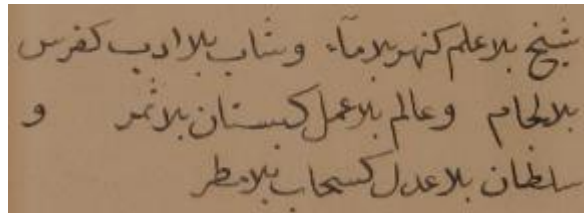 شيخ بلا علم كنهر بلا مآء وشاب بلا ادب كفرس
بلا لجام وعالم بلا عمل كبستان بلا ثمر و
سلطان بلا عدل كسحاب بلا مطر